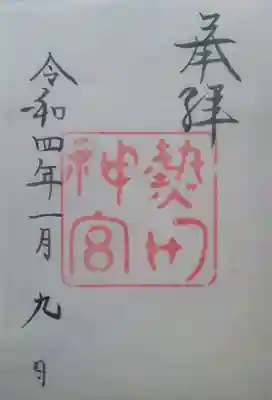 奉拜
熱田
神宮
令和四年一月九日